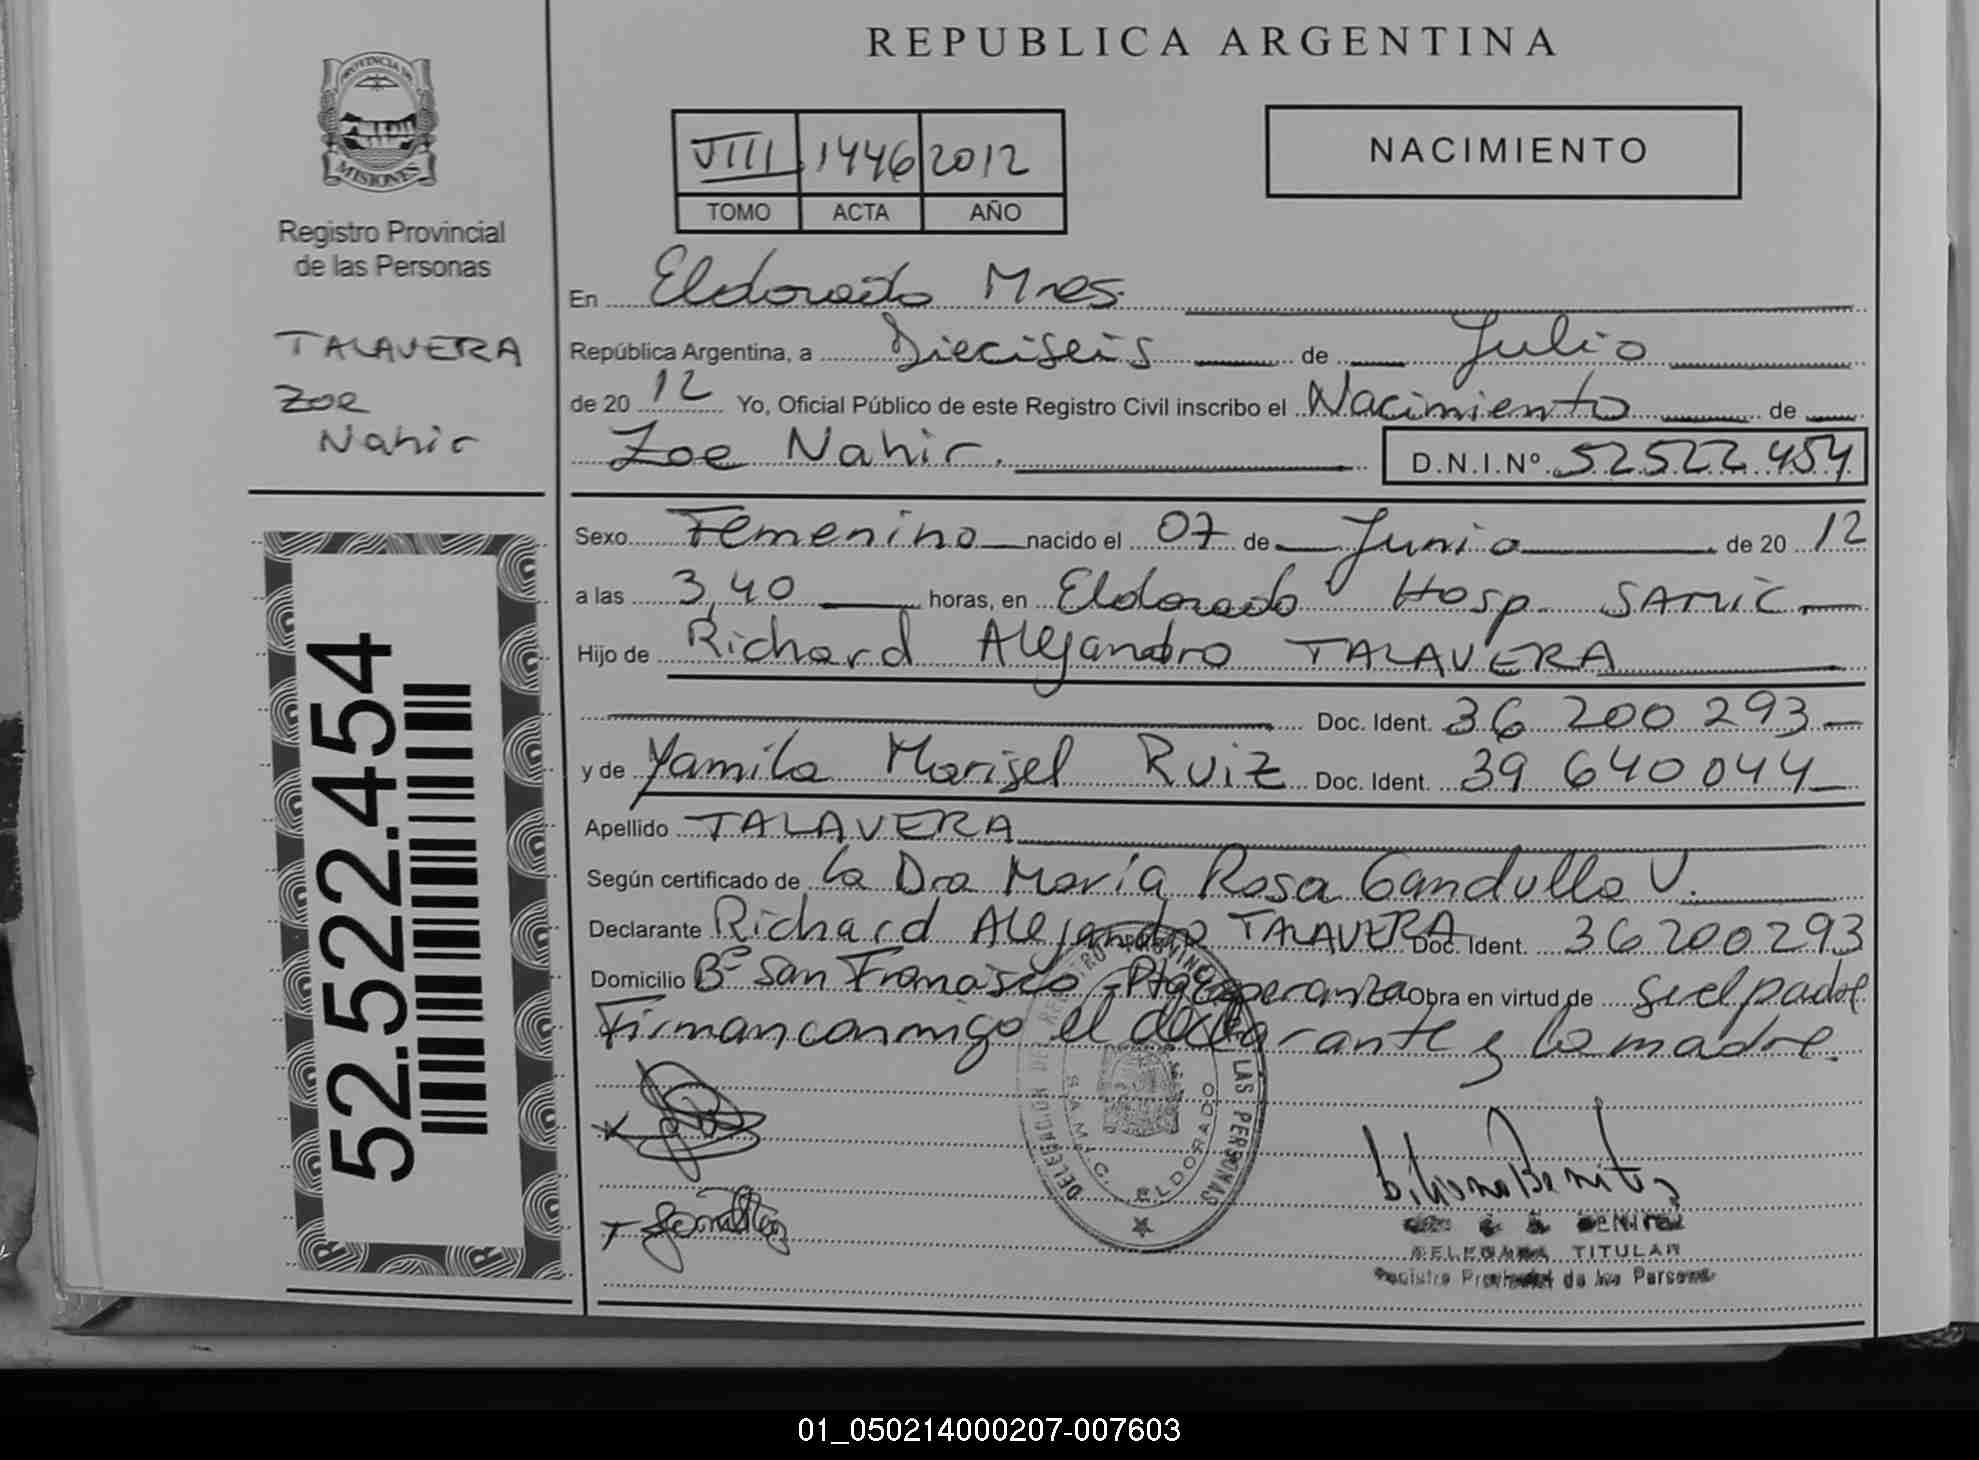 REPUBLICA ARGENTINA
PROVINCIA DE
MISIONES
Registro Provincial
de las Personas
TALAVERA
Zoe
Nahir
52.522.454
VIII 1446 2012
TOMO ACTA AÑO
NACIMIENTO
En Eldorado Mnes.
República Argentina, a Dieciseis de Julio
de 20 12 Yo, Oficial Público de este Registro Civil inscribo el Nacimiento de
Zoe Nahir. D.N.I.Nº 52522454
Sexo Femenino nacido el 07 de Junio de 20 12
a las 3,40 horas, en Eldorado Hosp SAMIC
Hijo de Richard Alejandro TALAVERA
Doc. Ident. 36 200 293
y de Yamila Marisel Ruiz Doc. Ident. 39 640 044
Apellido TALAVERA
Según certificado de la Dra María Rosa Gandulla V.
Declarante Richard Alejandro TALAVERA Doc. Ident. 36200293
Domicilio Bº San Francisco Pto Esperanza Obra en virtud de ser el padre
Firman conmigo el declarante y la madre.
DELEGACION DEL REGISTRO PROVINCIAL LAS PERSONAS
S.A.M.I.C. ELDORADO
BENITEZ
DELEGADA TITULAR
Registro Provincial de las Personas
01_050214000207-007603